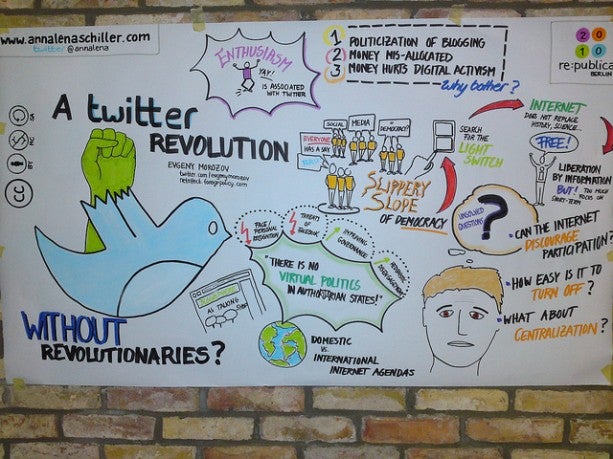 www.annalenaschiller.com
twitter @annalena
ENTHUSIASM
YAY!
IS ASSOCIATED
WITH TWITTER
1 POLITICIZATION OF BLOGGING
2 MONEY MIS-ALLOCATED
3 MONEY HURTS DIGITAL ACTIVISM
why bother?
20
10
re:publica
BERLIN
A twitter
REVOLUTION
EVGENY MOROZOV
twitter.com/evgenymorozov
neteffect.foreignpolicy.com
WITHOUT
REVOLUTIONARIES?
SOCIAL
MEDIA
= DEMOCRACY?
EVERYONE
HAS A SAY
SEARCH
FOR THE
LIGHT
SWITCH
SLIPPERY
SLOPE
OF DEMOCRACY
INTERNET
DOES NOT REPLACE
HISTORY, SCIENCE...
FREE!
LIBERATION
BY INFORMATION
BUT! TOO MUCH
FOCUS ON
SHORT-TERM
UNSOLVED
QUESTIONS
?
• CAN THE INTERNET
DISCOURAGE
PARTICIPATION?
• HOW EASY IS IT TO
TURN OFF?
• WHAT ABOUT
CENTRALIZATION?
IMPROVING
GOVERNANCE
"THERE IS NO
VIRTUAL POLITICS
IN AUTHORITARIAN STATES!"
DOMESTIC
VS.
INTERNATIONAL
INTERNET AGENDAS
cc
BY
NC
SA